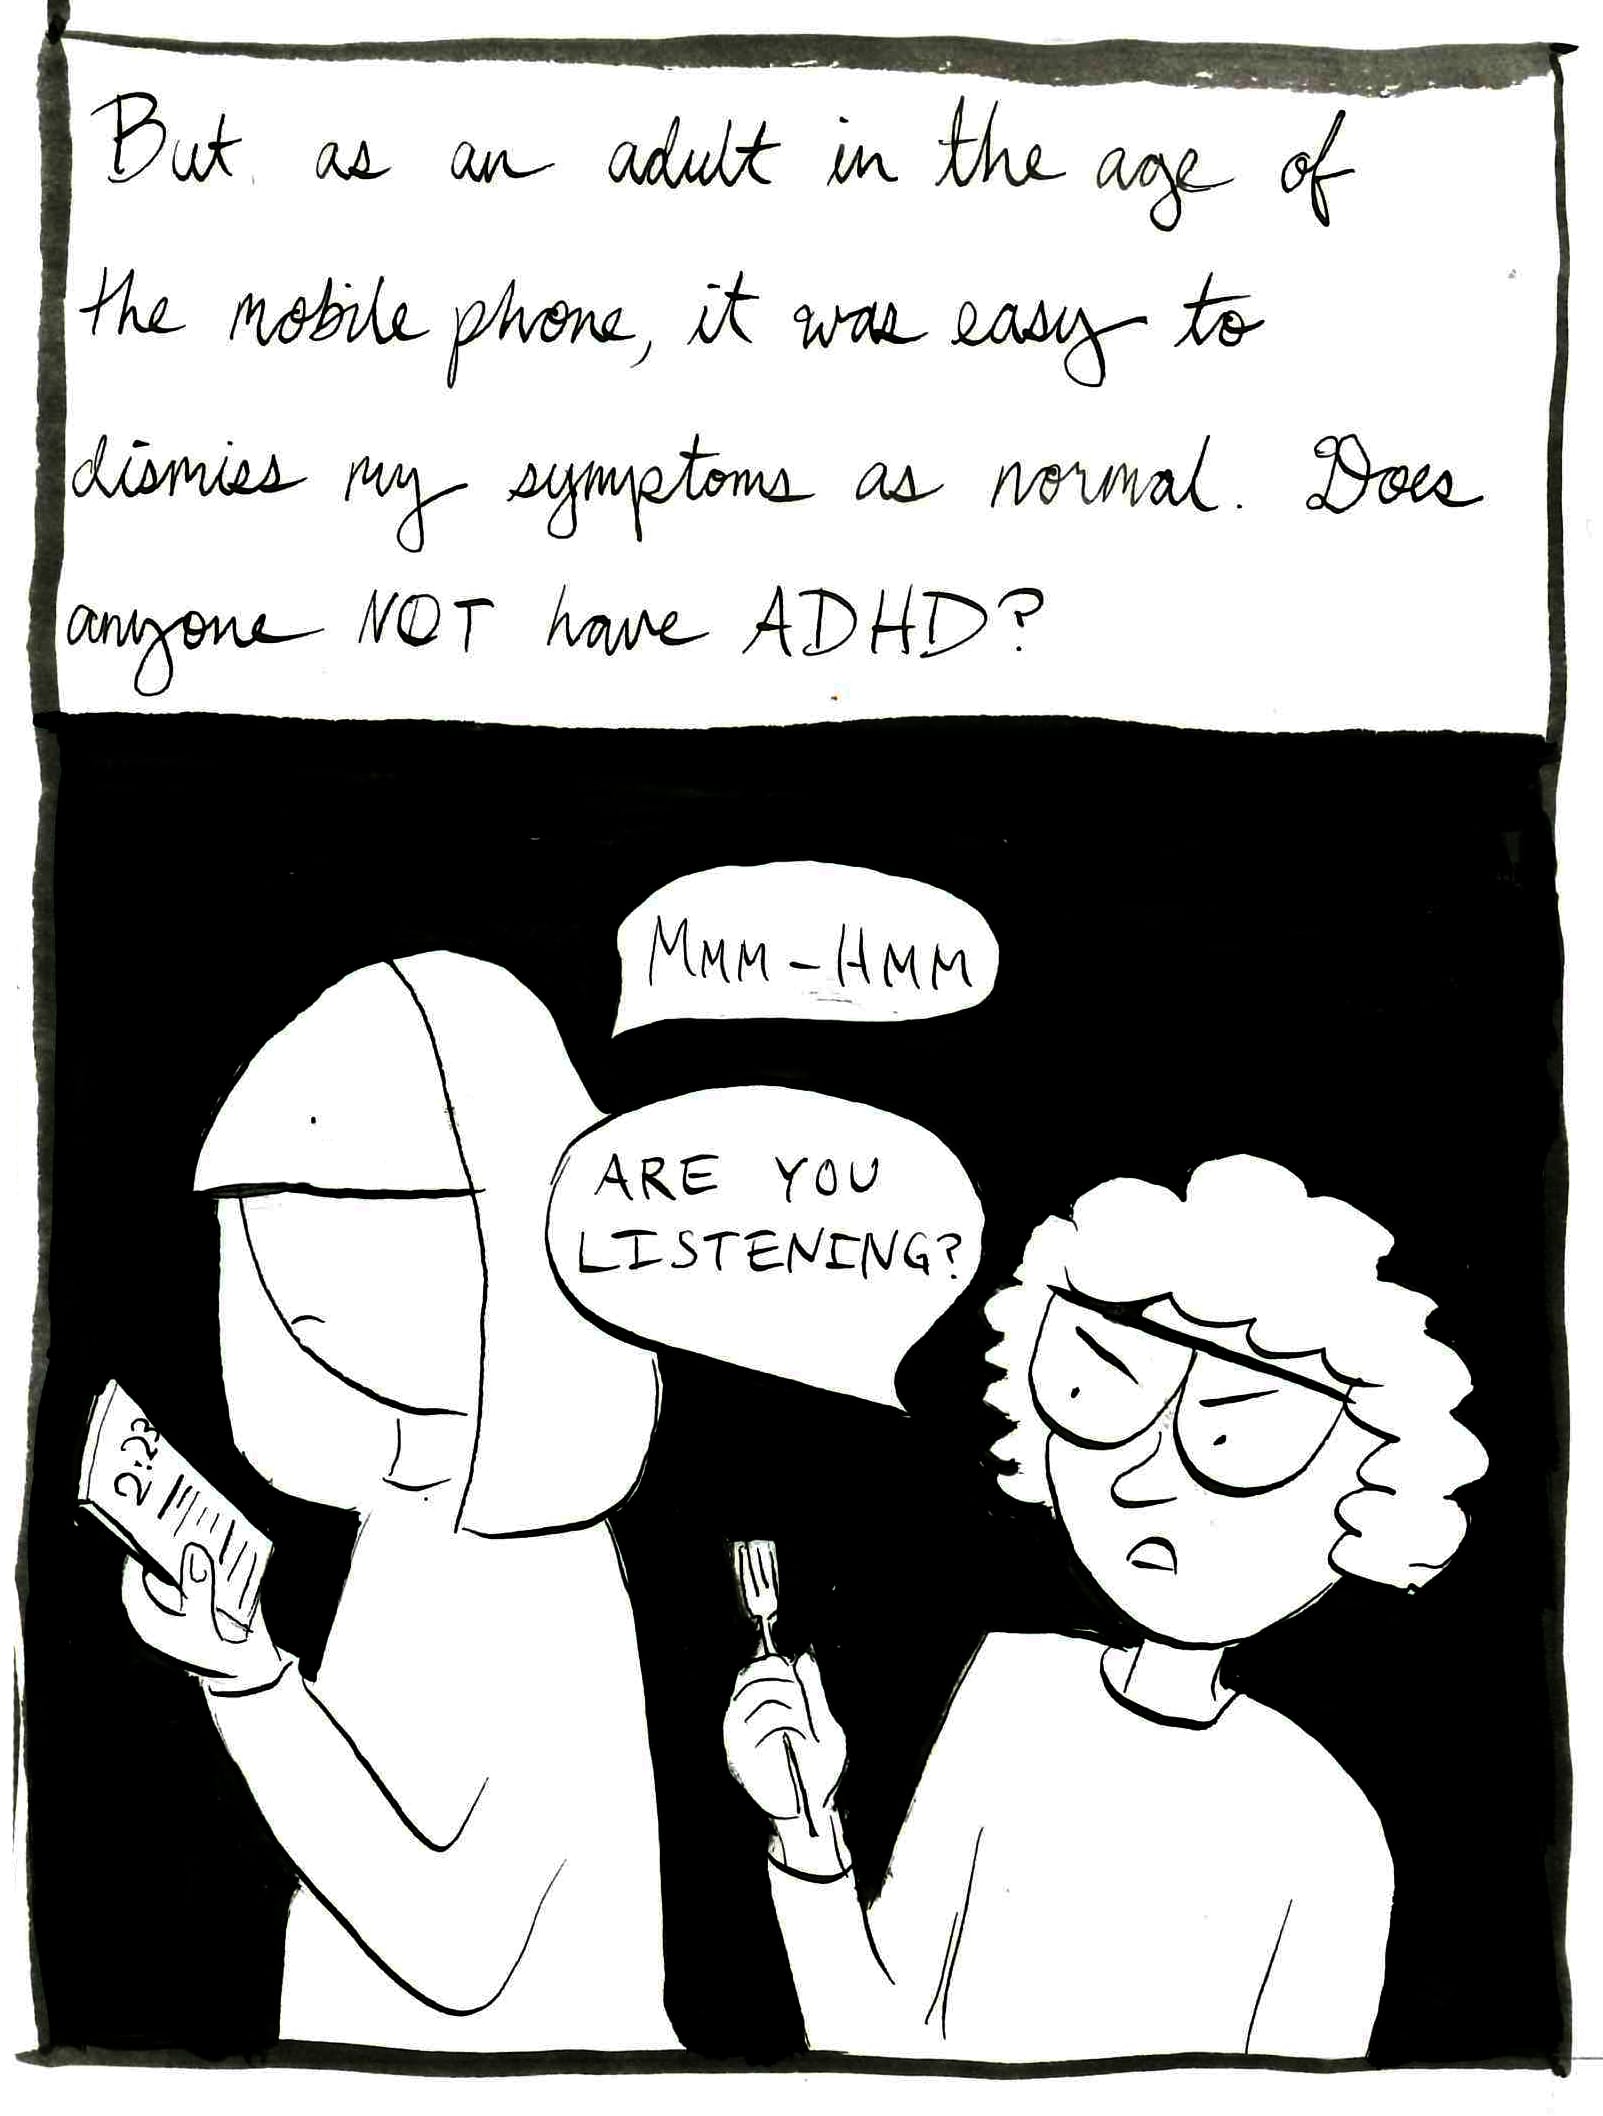 But as an adult in the age of
the mobile phone, it was easy to
dismiss my symptoms as normal. Does
anyone NOT have ADHD?
MMM-HMM
ARE YOU
LISTENING?
2:23